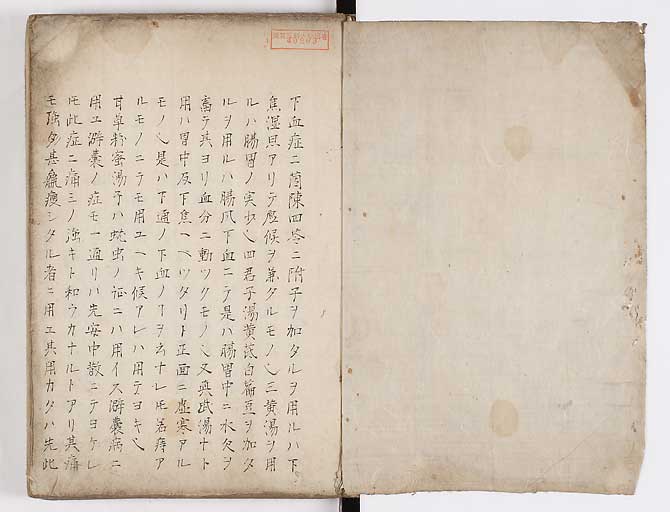 下血症ニ茵陳四苓ニ附子ヲ加タルヲ用ルハ下
焦湿且アリテ虚候ヲ兼タルモノ乄三黄湯ヲ用
ルハ腸胃ノ実歩乄四君子湯黄芪白扁豆ヲ加タ
ルヲ用ルハ腸風下血ニテ是ハ腸胃中ニ水欠ヲ
畜テ其ヨリ血分ニ動ツクモノ乄又真武湯ナト
用ハ胃中反下焦ヘヘツタリト正面ニ虚寒アル
モノ乄是ハ下通ノ下血ノ丁ヲ云ナレ𪜈若痔ア
ルモノニテモ用ユヘキ候アレハ用テヨキ乄
甘草粉蜜湯予ハ蚘虫ノ証ニハ用イス澼嚢病ニ
用ユ澼嚢ノ症モ一通リハ先安中散ニテヨケレ
𪜈此症ニ痛ミノ強キト和ウカナルトアリ其痛
モ強ク甚羸痩シタル者ニ用エ其用カタハ先此
40803